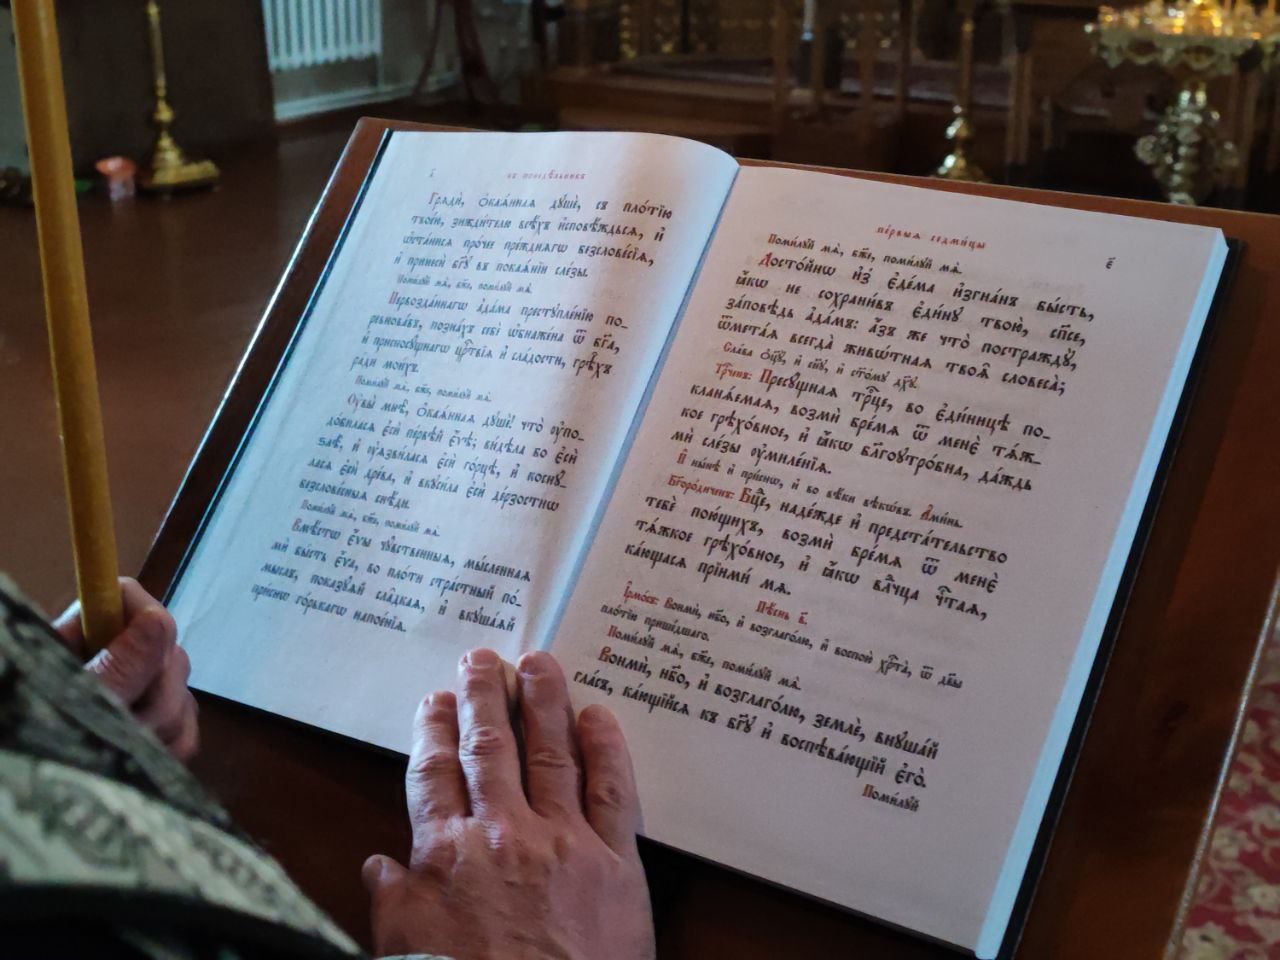 въ понедѣльникъ
Гряди́, ѻ҆каѧ́ннаѧ дꙋшѐ, съ пло́тїю
твое́ю, зижди́телю всѣ́хъ и҆сповѣ́ждьсѧ, и҆
ѡ҆ста́нисѧ про́чее пре́жднѧгѡ безслове́сїѧ,
и҆ принесѝ бг҃ꙋ въ покаѧ́нїи сле́зы.
Поми́лꙋй мѧ̀, бж҃е, поми́лꙋй мѧ̀.
Первозда́ннагѡ а҆да́ма престꙋпле́нїю по-
ревнова́въ, позна́хъ себѐ ѡ҆бнаже́на ѿ бг҃а,
и҆ присносꙋ́щнагѡ црⷭ҇твїѧ и҆ сла́дости, грѣ̑хъ
ра́ди мои́хъ.
Поми́лꙋй мѧ̀, бж҃е, поми́лꙋй мѧ̀.
Оу҆вы̀ мнѣ̀, ѻ҆каѧ́ннаѧ дꙋшѐ! что̀ ᲂу҆по-
до́биласѧ є҆сѝ пе́рвѣй є҆́ѵѣ; ви́дѣла бо є҆сѝ
ѕлѣ̀, и҆ ᲂу҆ѧзви́ласѧ є҆сѝ го́рцѣ, и҆ коснꙋ́-
ласѧ є҆сѝ дре́ва, и҆ вкꙋси́ла є҆сѝ де́рзостнѡ
безслове́сныѧ снѣ́ди.
Поми́лꙋй мѧ̀, бж҃е, поми́лꙋй мѧ̀.
Вмѣ́стѡ є҆́ѵы чꙋ́вственныѧ, мы́сленнаѧ
мѝ бы́сть є҆́ѵа, во пло́ти стра́стный по́-
мыслъ, показꙋ́ѧй сла̑дкаѧ, и҆ вкꙋша́ѧй
при́снѡ го́рькагѡ напое́нїѧ.
пе́рвыѧ седми́цы
є҃
Поми́лꙋй мѧ̀, бж҃е, поми́лꙋй мѧ̀.
Досто́йнѡ и҆з̾ є҆де́ма и҆згна́нъ бы́сть,
ꙗ҆́кѡ не сохрани́въ є҆ди́нꙋ твою̀, сп҃се,
за́повѣдь а҆да́мъ: а҆́зъ же что̀ постраждꙋ̀,
ѿмета́ѧ всегда̀ живѡ́тнаѧ твоѧ̑ словеса̀;
Сла́ва ѻ҆ц҃ꙋ̀, и҆ сн҃ꙋ, и҆ ст҃о́мꙋ дх҃ꙋ.
Трⷪ҇ченъ: Пресꙋ́щнаѧ трⷪ҇це, во є҆ди́ницѣ по-
кланѧ́емаѧ, возмѝ бре́мѧ ѿ менє̀ тѧ́ж-
кое грѣхо́вное, и҆ ꙗ҆́кѡ бл҃гоꙋтро́бна, да́ждь
мѝ сле́зы ᲂу҆миле́нїѧ.
И҆ ны́нѣ и҆ при́снѡ, и҆ во вѣ́ки вѣкѡ́въ. А҆ми́нь.
Бг҃оро́диченъ: Бцⷣе, наде́жде и҆ предста́тельство
тебѐ пою́щихъ, возмѝ бре́мѧ ѿ менє̀
тѧ́жкое грѣхо́вное, и҆ ꙗ҆́кѡ вл҃чца чⷭ҇таѧ,
ка́ющасѧ прїимѝ мѧ̀.
Пѣ́снь в҃.
І҆рмо́съ: Вонмѝ, нб҃о, и҆ возглаго́лю, и҆ воспою̀ хрⷭ҇та̀, ѿ дв҃ы
пло́тїю прише́дшаго.
Поми́лꙋй мѧ̀, бж҃е, поми́лꙋй мѧ̀.
Вонмѝ, нб҃о, и҆ возглаго́лю, землѐ, внꙋша́й
гла́съ, ка́ющїйсѧ къ бг҃ꙋ и҆ воспѣва́ющїй є҆го̀.
Поми́лꙋй